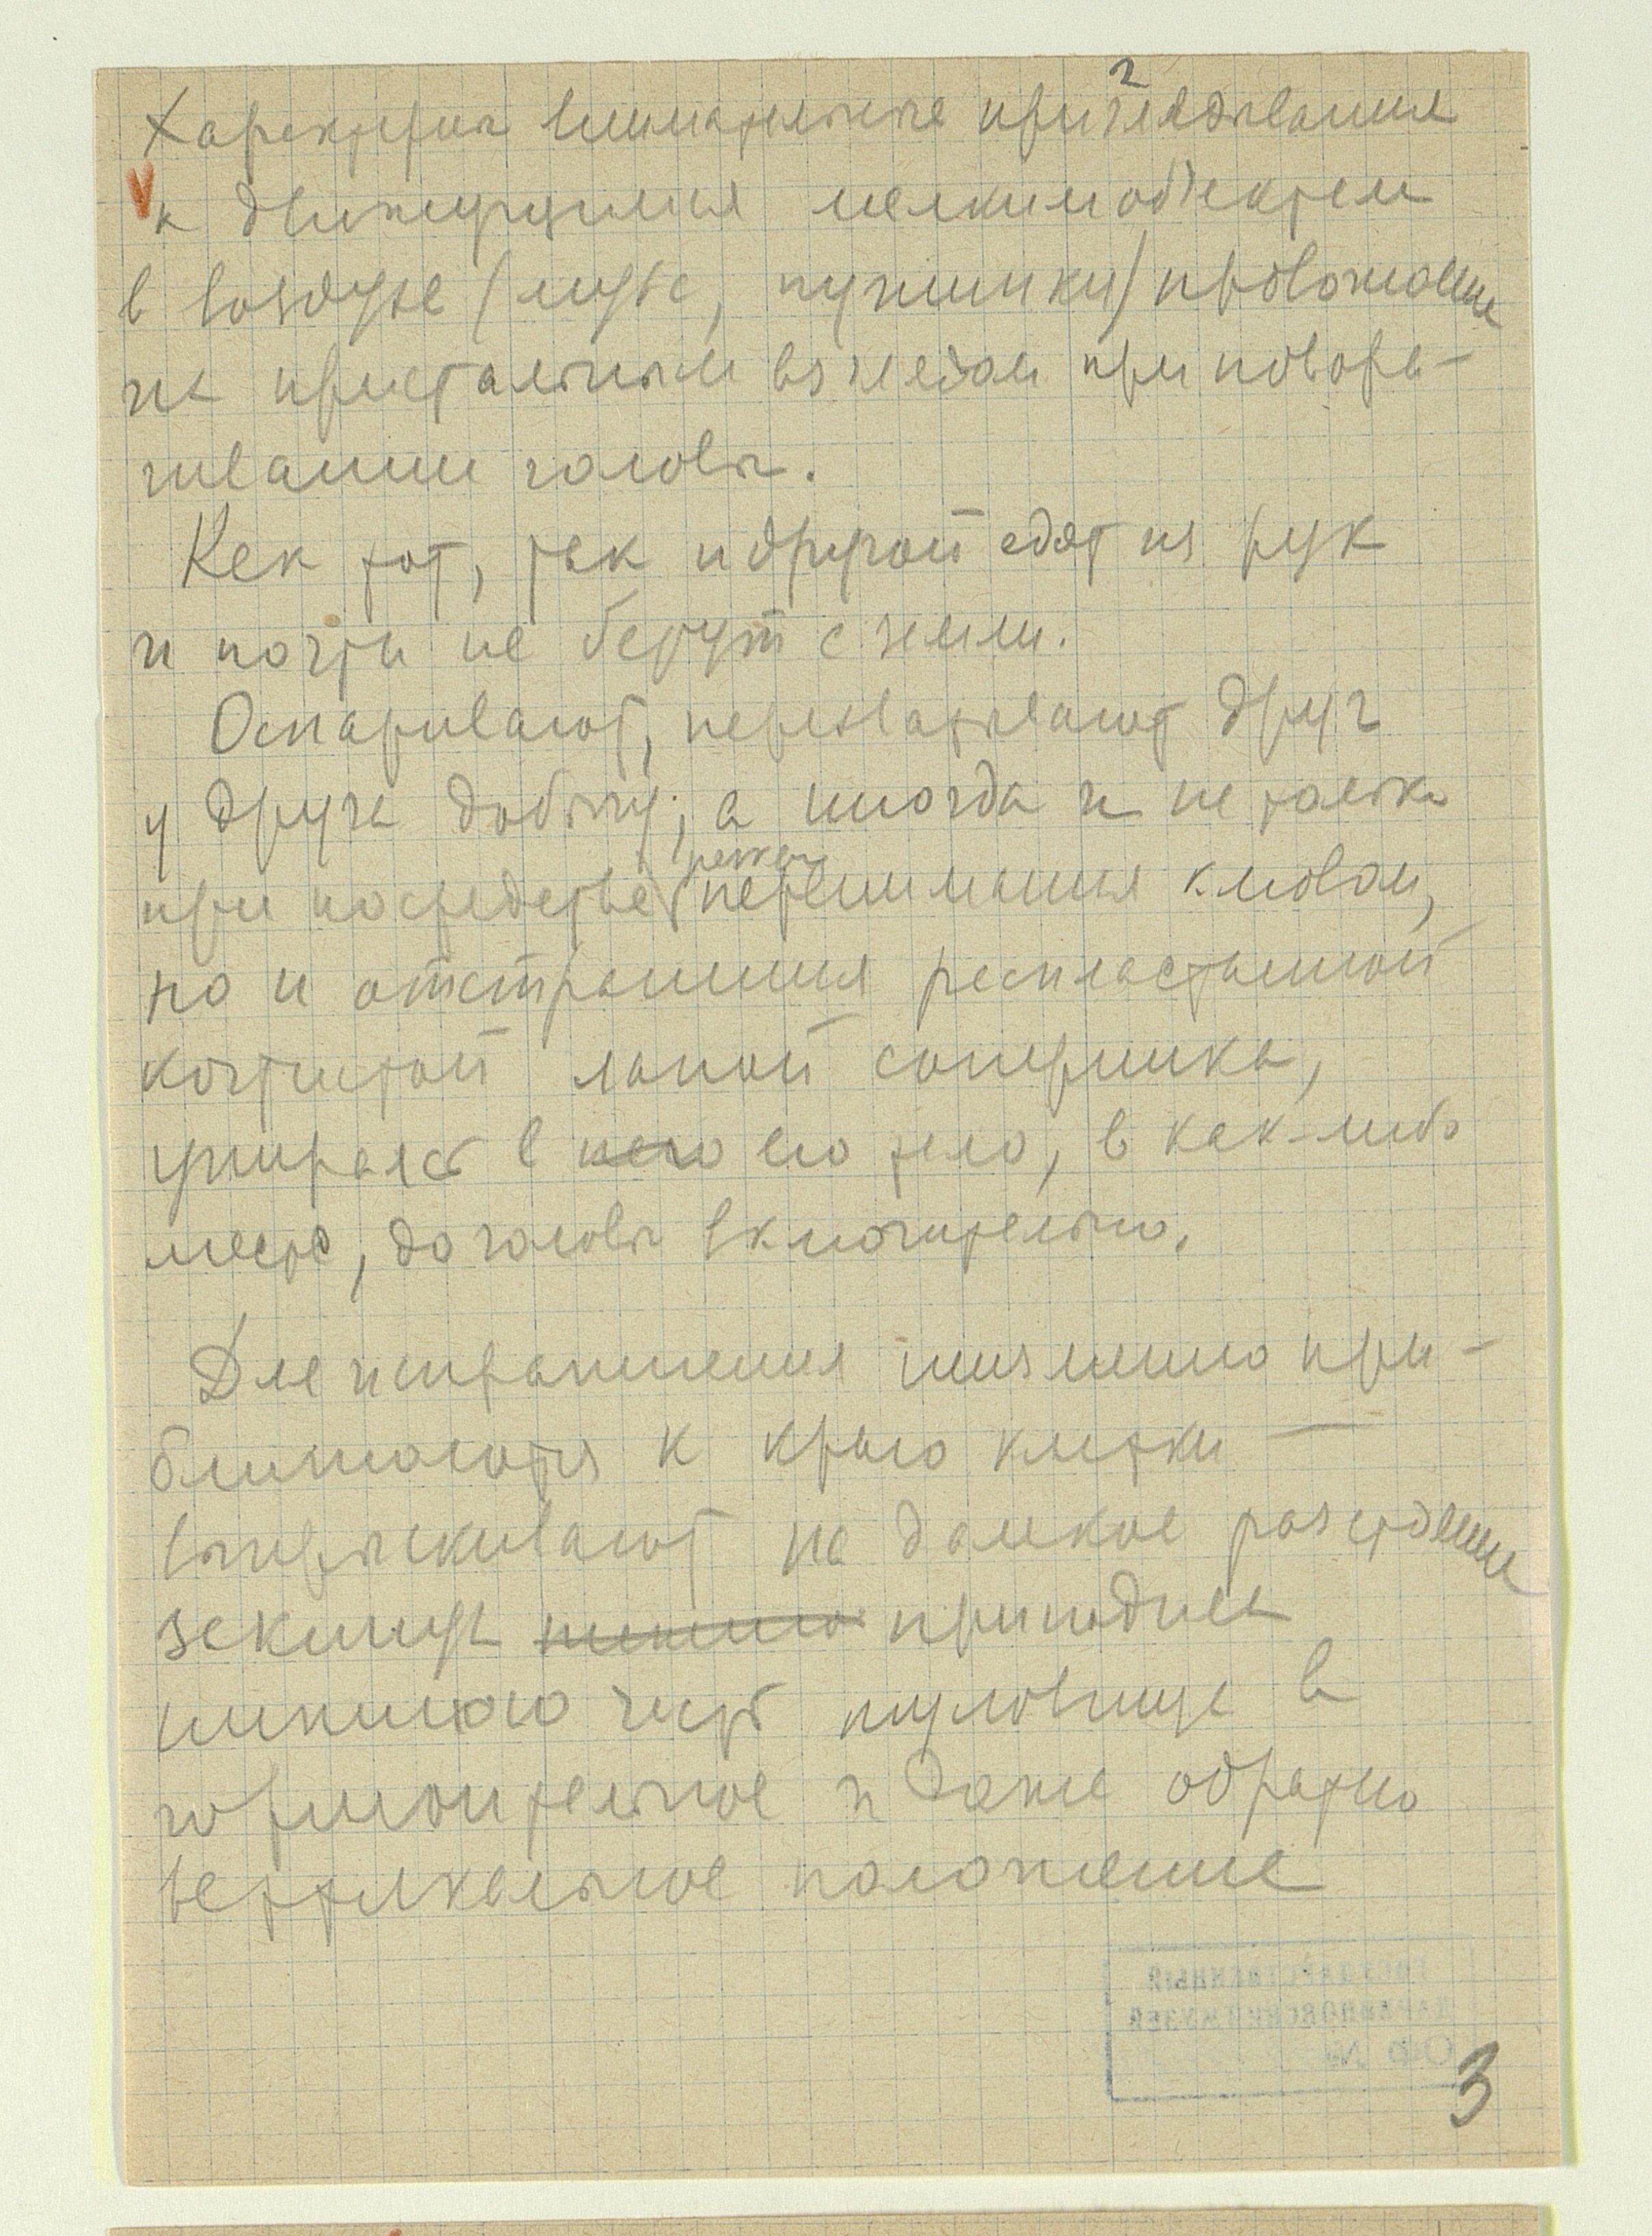 Характерна внимательные приглядывания
к движущимся мелким объектам
в воздухе (муха, пушинки) провожание
их пристальным взглядом при повора-
чивании головы.
Как тот, так и другой едят из рук
и почти не берут с земли.
Оспаривают, перехватывают друг
у друга добычу; а иногда и не только
при посредстве перенимания клювом,
но и отстранения распластанной
когтистой лапой соперника,
упираясь в него его тело, в как-либо
место, до головы включительно.
Для испражнения неизменно при-
ближаются к краю клетки —
выпрыскивают на далекое расстояние
закинув приподняв
нижнюю часть туловища в
горизонтальное и даже обратно
вертикальное положение
ГОСУДАРСТВЕННЫЙ
ДАРВИНОВСКИЙ МУЗЕЙ
ОФ №
3